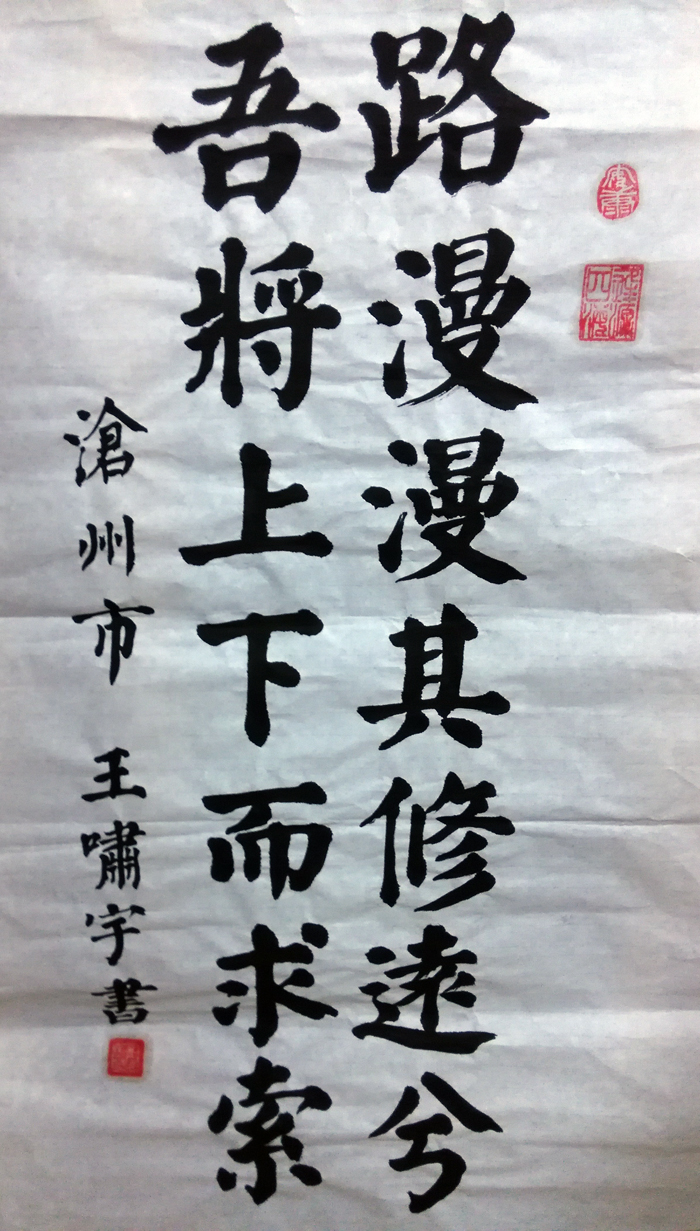 路漫漫其修遠兮
吾將上下而求索
滄州市 王嘯宇書